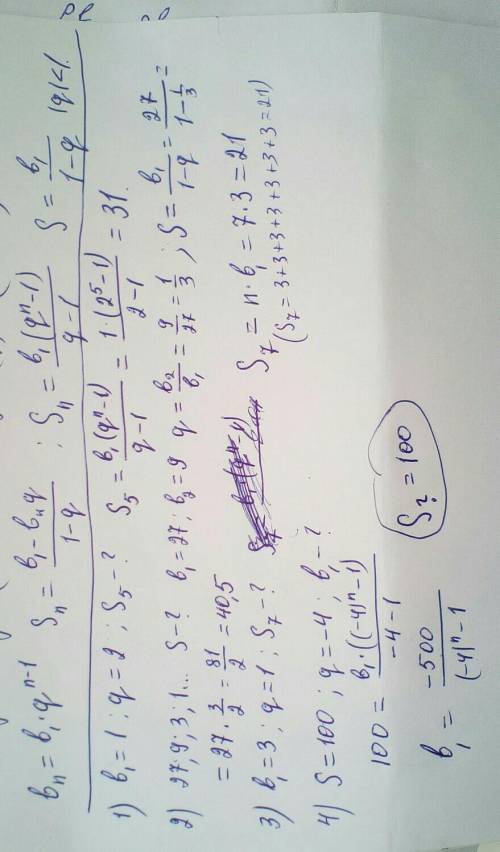 bₙ = b₁·qⁿ⁻¹   Sₙ = (b₁ − bₙq)/(1−q) ; Sₙ = b₁(qⁿ−1)/(q−1)   S = b₁/(1−q)  |q|<1.
1) b₁ = 1 ; q = 2 ; S₅ − ?   S₅ = b₁(qⁿ−1)/(q−1) = 1·(2⁵−1)/(2−1) = 31.
2) 27; 9; 3; 1... S − ?   b₁ = 27; b₂ = 9   q = b₂/b₁ = 9/27 = 1/3 ; S = b₁/(1−q) = 27/(1−1/3) =
= 27·3/2 = 81/2 = 40,5
3) b₁ = 3 ; q = 1 ; S₇ − ?   S₇ = n·b₁ = 7·3 = 21
(S₇ = 3+3+3+3+3+3+3 = 21)
4) S = 100 ; q = −4 ; b₁ − ?
100 = b₁·((−4)ⁿ−1)/(−4−1)
b₁ = −500/((−4)ⁿ−1)   S? = 100